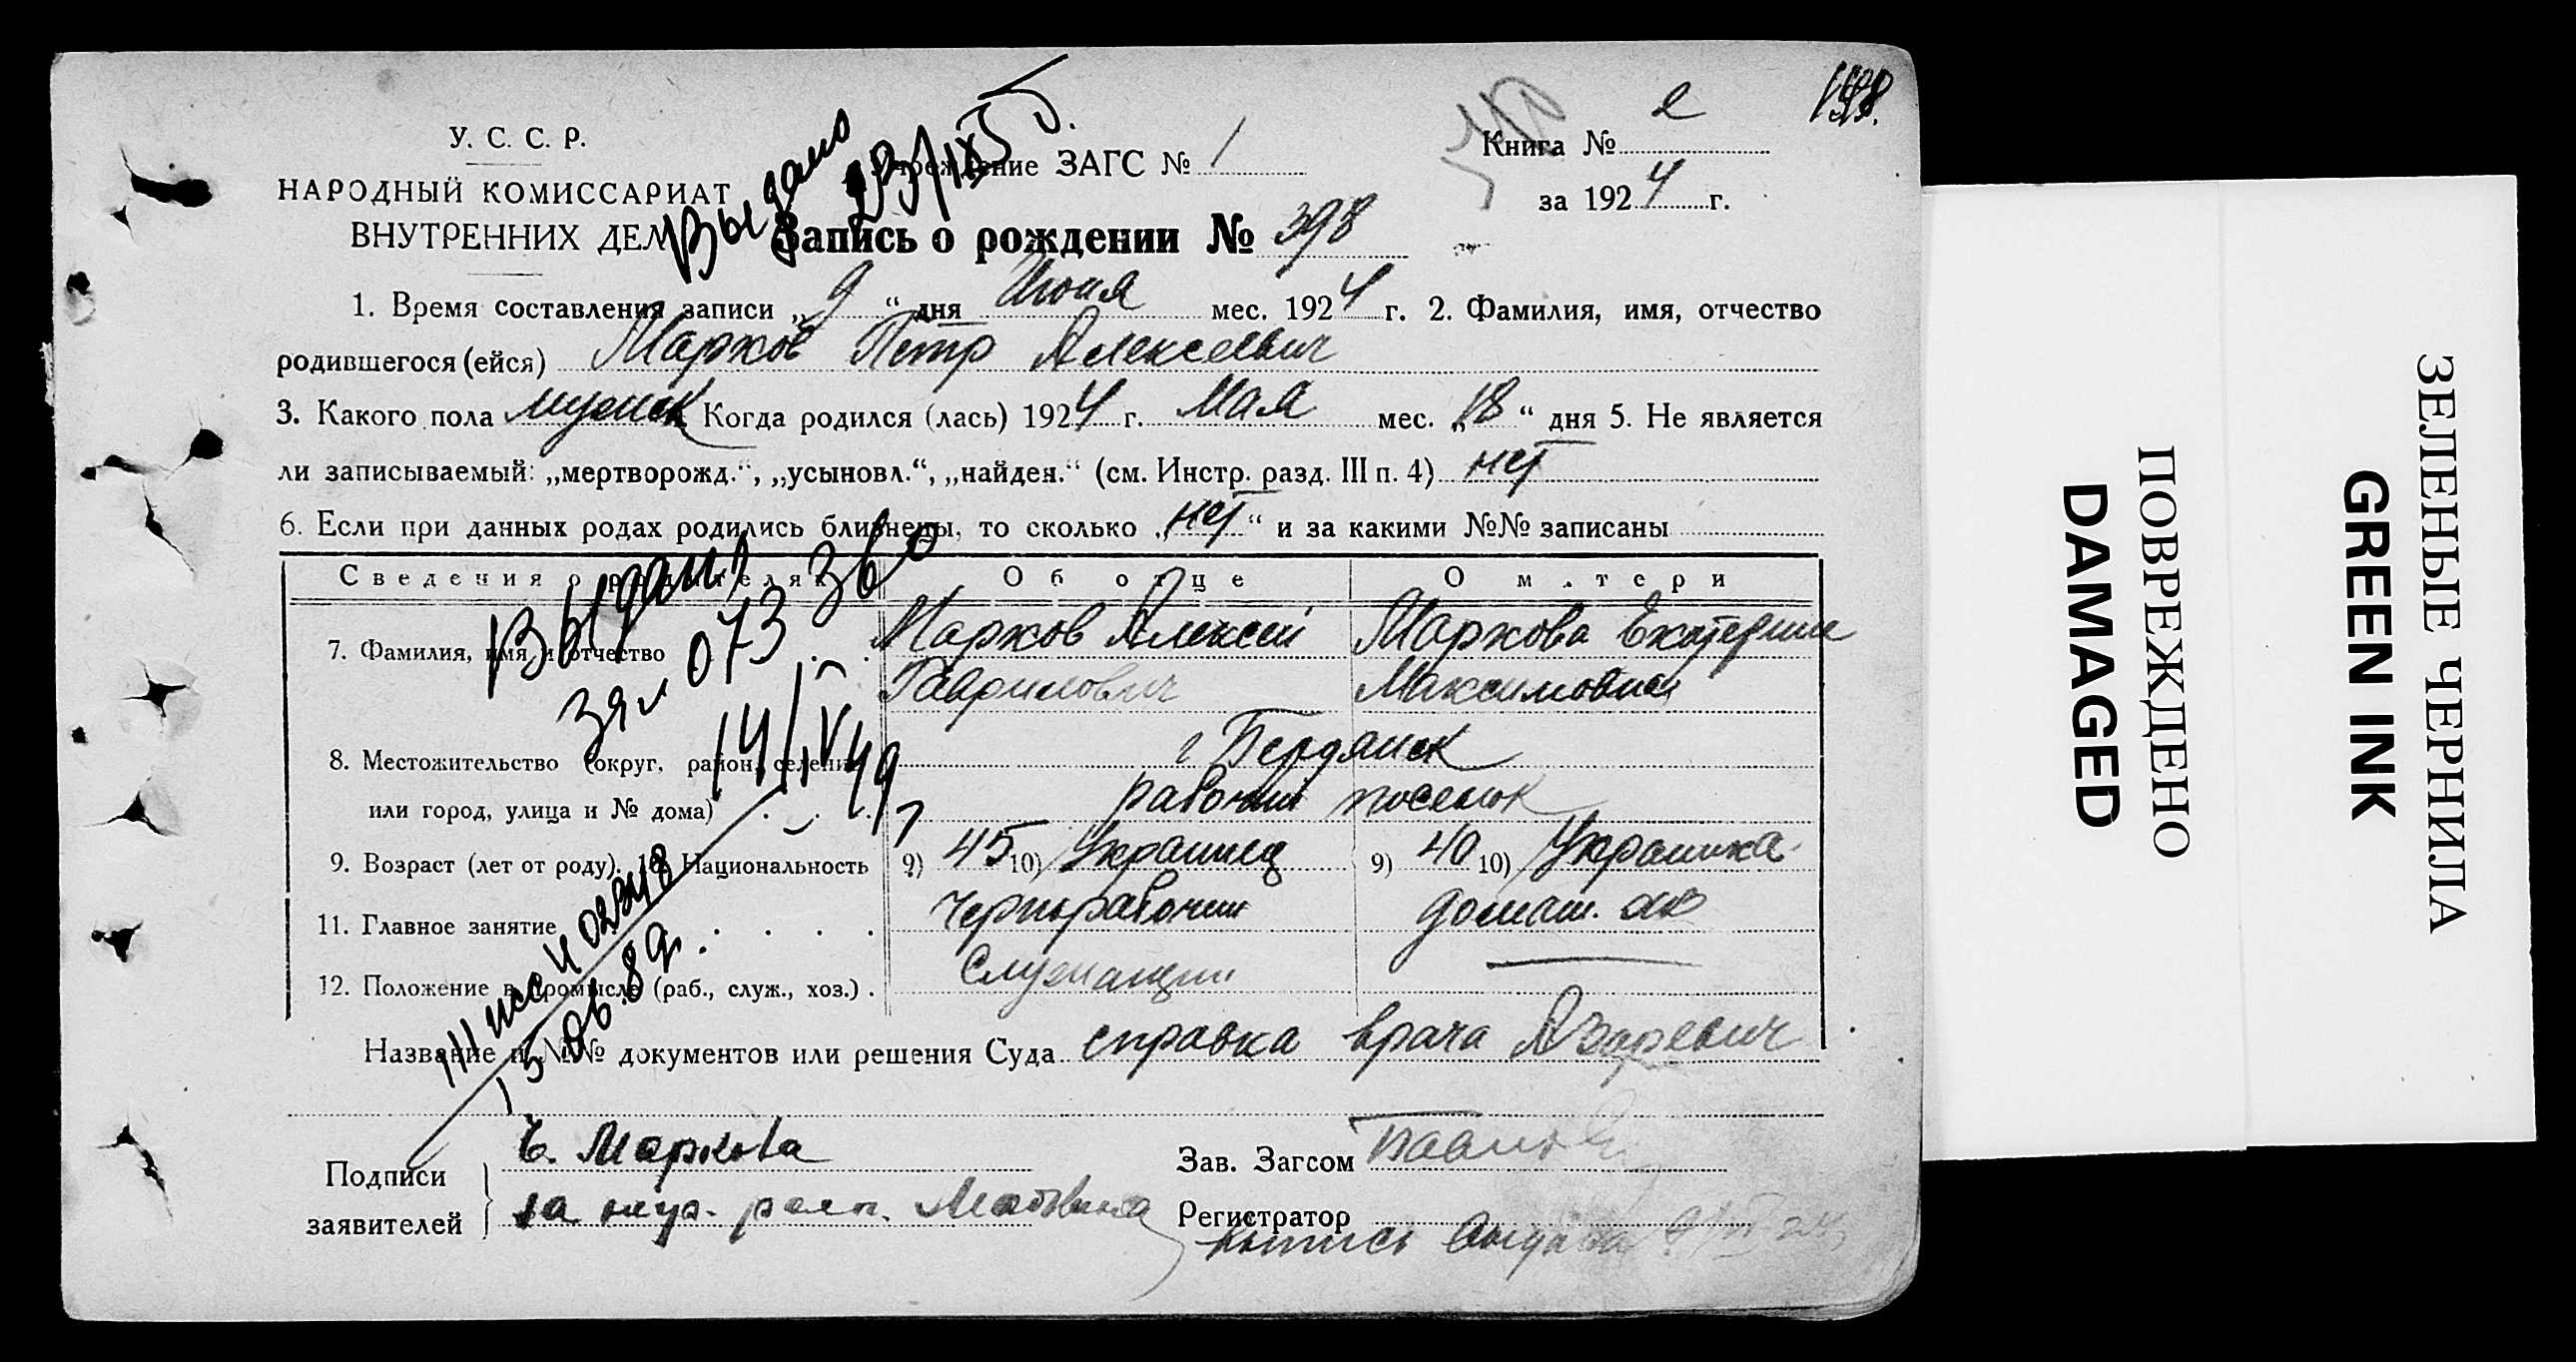 У. С. С. Р.
НАРОДНЫЙ КОМИССАРИАТ
ВНУТРЕННИХ ДЕЛ
Выдано
Учреждение ЗАГС № 1
Книга № 2
за 1924 г.
Запись о рождении № 398
1. Время составления записи „9“ дня Июня мес. 1924 г. 2. Фамилия, имя, отчество
родившегося (ейся) Марков Петр Алексеевич
3. Какого пола мужск Когда родился (лась) 1924 г. Мая мес. „18“ дня 5. Не является
ли записываемый: „мертворожд.“, „усыновл.“, „найден.“ (см. Инстр. разд. III п. 4) нет
6. Если при данных родах родились близнецы, то сколько „нет“ и за какими №№ записаны
Сведения о родителях Об отце О матери
7. Фамилия, имя и отчество Марков Алексей Маркова Екатерина
Гаврилович Максимовна
8. Местожительство (округ, район, селение г Бердянск
или город, улица и № дома) рабочий поселок
9. Возраст (лет от роду). 10. Национальность 9) 45 10) Украинец 9) 40 10) Украинка
11. Главное занятие Чернорабочий домаш. хоз
12. Положение в промысле (раб., служ., хоз.) Служащий
Название и №№ документов или решения Суда справка врача Азаревич
Выдан
073360
14/IV 49
III исс 4 022418
15 08. 89.
Подписи заявителей Е. Маркова
за негр. расп. Матвина
Зав. Загсом Павлов
Регистратор
выпись выдана
ПОВРЕЖДЕНО
DAMAGED
ЗЕЛЕНЫЕ ЧЕРНИЛА
GREEN INK